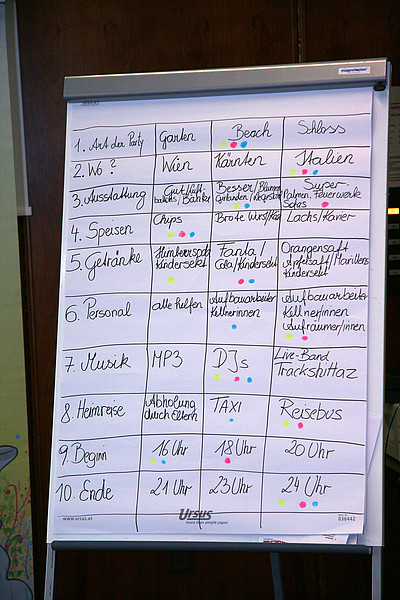 magnetoplan
1. Art der Party Garten Beach Schloss
2. Wo? Wien Kärnten Italien
3. Ausstattung Gut/Luft- Besser/Blumen Super-
/Bänke Palmen, Feuerwerke
Sofas
4. Speisen Chips Brote Wurst/Käse Lachs/Kavier
5. Getränke Fanta/ Orangensaft
Kindersekt Cola/Kindersekt Apfelsaft/Marillens
Kindersekt
6. Personal alle helfen Aufbauarbeiter Aufbauarbeiter
Kellnerinnen Kellner/innen
Aufräumer/innen
7. Musik MP3 DJs Live-Band
Trackshittaz
8. Heimreise Abholung TAXI Reisebus
durch Eltern
9. Beginn 16 Uhr 18 Uhr 20 Uhr
10. Ende 21 Uhr 23 Uhr 24 Uhr
www.ursus.at Ursus 036442
more than simple paper